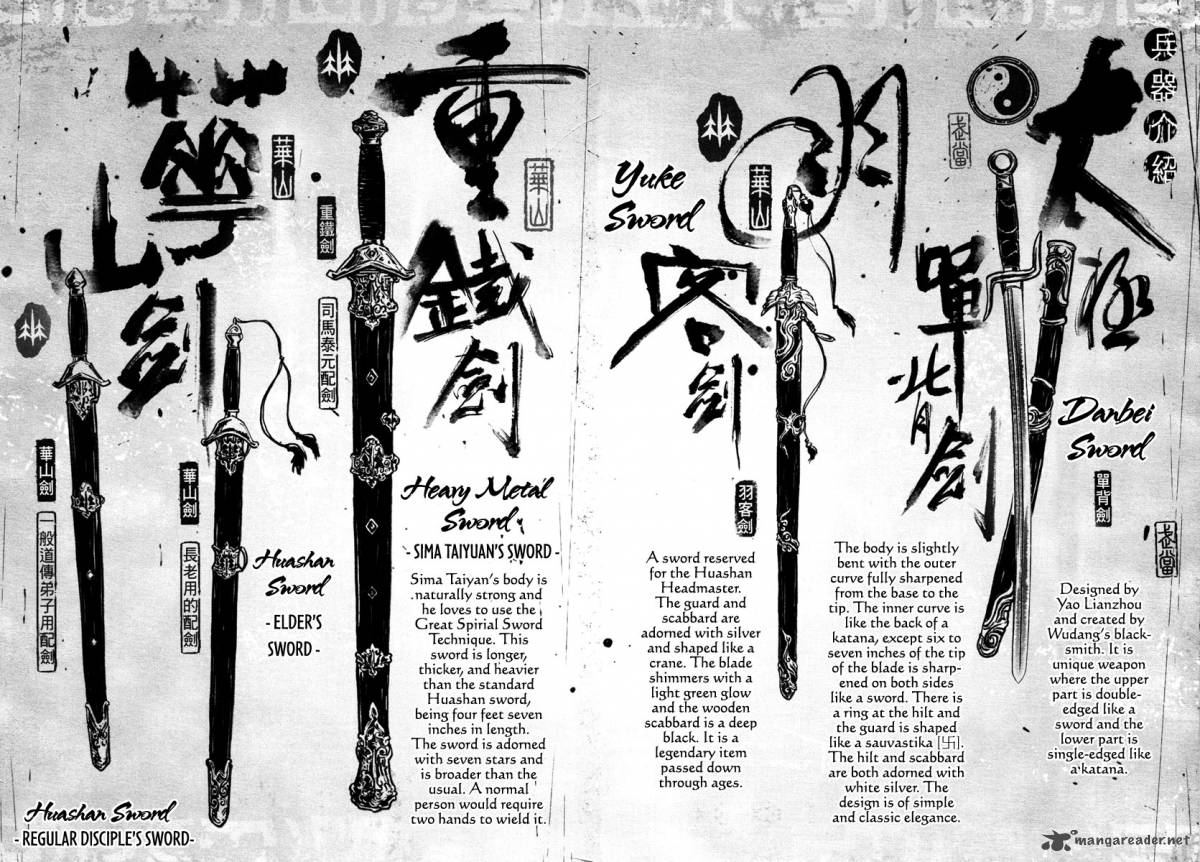 兵器介紹
太極
武當
單背劍
Danbei
Sword
單背劍
武當
Designed by
Yao Lianzhou
and created by
Wudang's black-
smith. It is
unique weapon
where the upper
part is double-
edged like a
sword and the
lower part is
single-edged like
a katana.
The body is slightly
bent with the outer
curve fully sharpened
from the base to the
tip. The inner curve is
like the back of a
katana, except six to
seven inches of the tip
of the blade is sharp-
ened on both sides
like a sword. There is
a ring at the hilt and
the guard is shaped
like a sauvastika [卐].
The hilt and scabbard
are both adorned with
white silver. The
design is of simple
and classic elegance.
羽客劍
華山
Yuke
Sword
羽客劍
A sword reserved
for the Huashan
Headmaster.
The guard and
scabbard are
adorned with silver
and shaped like a
crane. The blade
shimmers with a
light green glow
and the wooden
scabbard is a deep
black. It is a
legendary item
passed down
through ages.
重鐵劍
華山
重鐵劍
司馬泰元配劍
Heavy Metal
Sword
- SIMA TAIYUAN'S SWORD -
Sima Taiyan's body is
naturally strong and
he loves to use the
Great Spirial Sword
Technique. This
sword is longer,
thicker, and heavier
than the standard
Huashan sword,
being four feet seven
inches in length.
The sword is adorned
with seven stars and
is broader than the
usual. A normal
person would require
two hands to wield it.
華山劍
華山
華山劍
長老用的配劍
Huashan
Sword
- ELDER'S
SWORD -
華山劍
一般道傳弟子用配劍
Huashan Sword
- REGULAR DISCIPLE'S SWORD-
mangareader.net